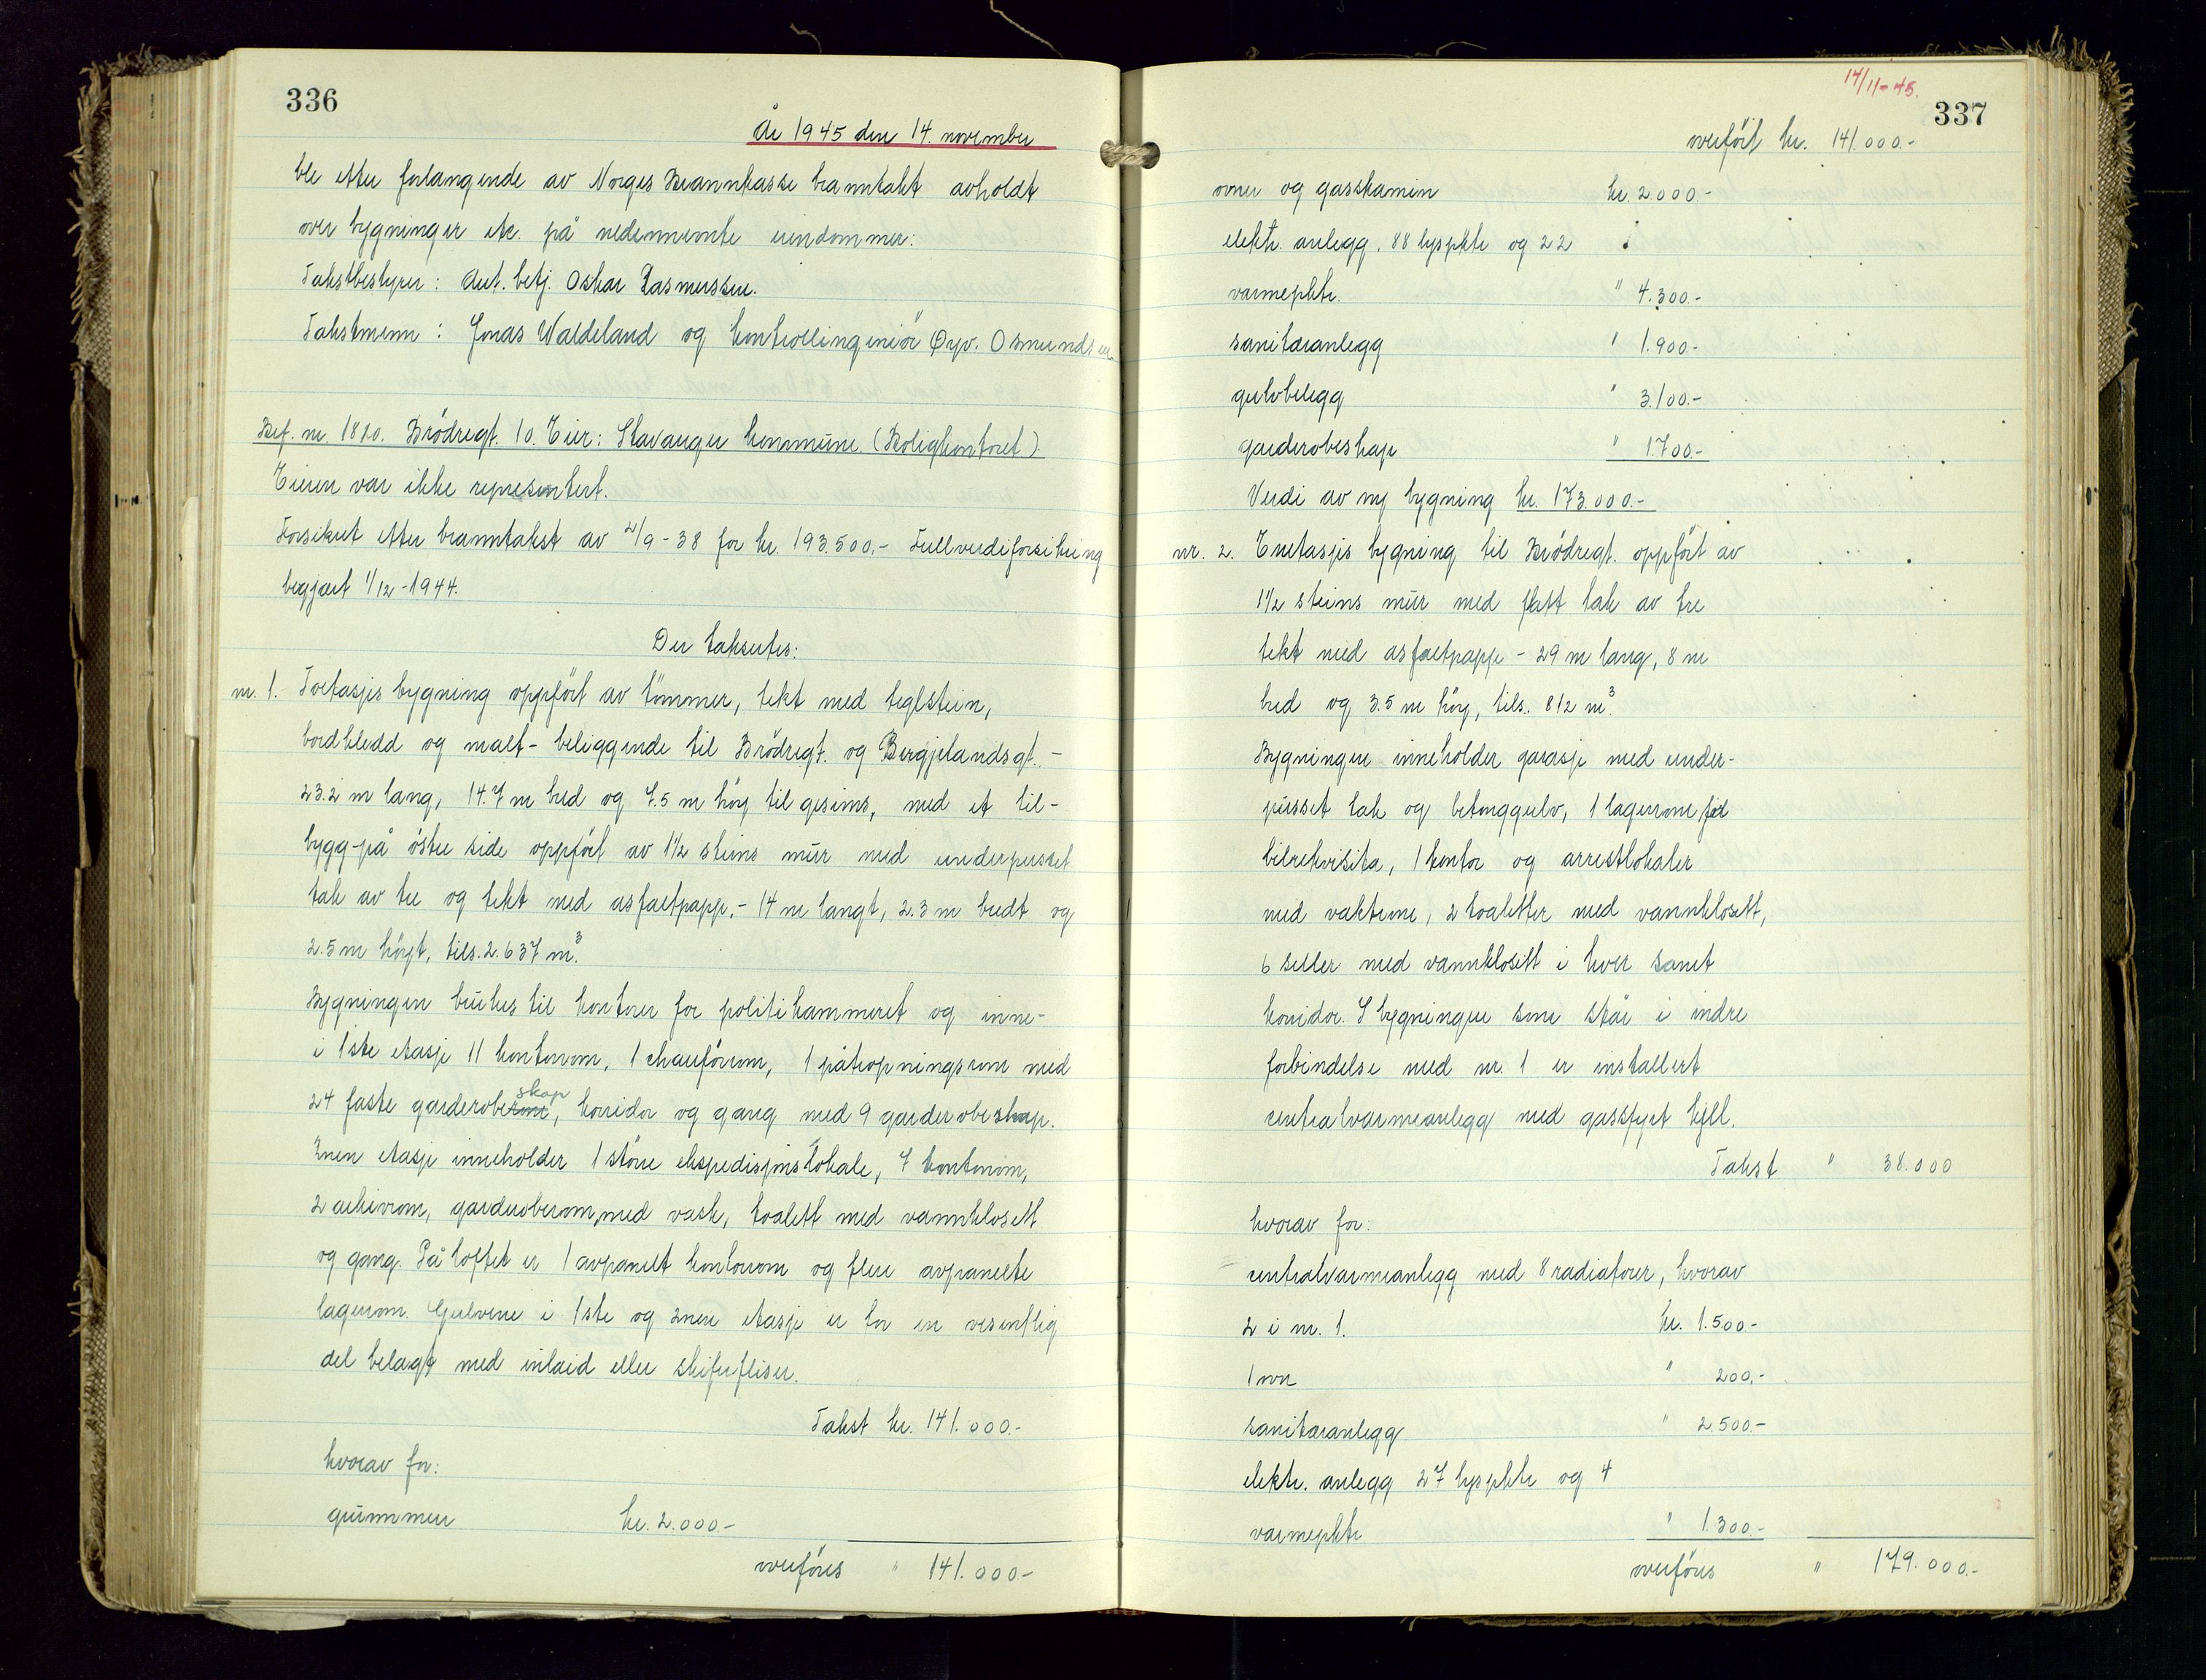 336
År 1945 den 14. november
ble etter forlangende av Norges Brannkasse branntakst avholdt
over bygninger etc. på nedennevnte eiendommer:
Takstbestyrer: Aut. betj. Oskar Rasmussen.
Takstmenn: Jonas Waldeland og kontrollingeniör Øyv. Osmundsen
Bef. nr. 1810. Brödregt. 10. Eier: Stavanger kommune. (Boligkontoret).
Eieren var ikke representert.
Forsikret etter branntakst av 2/9-38 for kr. 193.500.- Fullverdiforsikring
begjært 1/12-1944.
Der takseres:
nr. 1. Toetasjes bygning oppfört av tömmer, tekt med teglstein,
bordkledd og malt- beliggende til Brödregt. og Bergjelandsgt.-
23.2 m lang, 14.7 m bred og 7.5 m höy til gesims, med et til-
bygg-på östre side oppfört av 1½ steins mur med underpusset
tak av tre og tekt med asfaltpapp.- 14 m langt, 2.3 m bredt og
2.5 m höyt, tils. 2.637 m³.
Bygningen brukes til kontorer for politikammeret og inne-
i 1ste etasje 11 kontorrom, 1 chaufförrom, 1 påtropningsrom med
24 faste garderoberom skap, korridor og gang med 9 garderobeskap.
2nen etasje inneholder 1 större ekspedisjonslokale, 7 kontorrom,
2 arkivrom, garderoberom, med vask, toalett med vannklosett
og gang. På loftet er 1 avpanelt kontorrom og flere avpanelte
lagerrom. Gulvene i 1ste og 2nen etasje er for en vesentlig
del belagt med inlaid eller skiferfliser.
Takst kr. 141.000.-
hvorav for:
grunnmur kr. 2.000.-
overföres " 141.000.-
14/11-45.
337
overfört kr. 141.000.-
ovner og gasskamin kr. 2.000.-
elektr. anlegg, 88 lyspktr og 22
varmepktr. " 4.300.-
sanitæranlegg " 1.900.-
gulvbelegg " 3.100.-
garderobeskap " 1.700.-
Verdi av ny bygning kr. 173.000.-
nr. 2. Enetasjes bygning til Brödregt. oppfört av
1½ steins mur med flatt tak av tre
tekt med asfaltpapp - 29 m lang, 8 m
bred og 3.5 m höy, tils. 812 m³.
Bygningen inneholder garasje med under-
pusset tak og betonggulv, 1 lagerrom for
bilrekvisita, 1 kontor og arrestlokaler
med vaktrom, 2 toaletter med vannklosett,
6 seller med vannklosett i hver samt
korridor. I bygningen som står i indre
forbindelse med nr. 1 er installert
sentralvarmeanlegg med gassfyrt kjel.
Takst " 38.000
hvorav for:
sentralvarmeanlegg med 8 radiatorer, hvorav
2 i nr. 1. kr. 1.500.-
1 ovn " 200.-
sanitæranlegg " 2.500.-
elektr. anlegg 27 lyspktr og 4
varmepktr " 1.300.-
overföres " 179.000.-